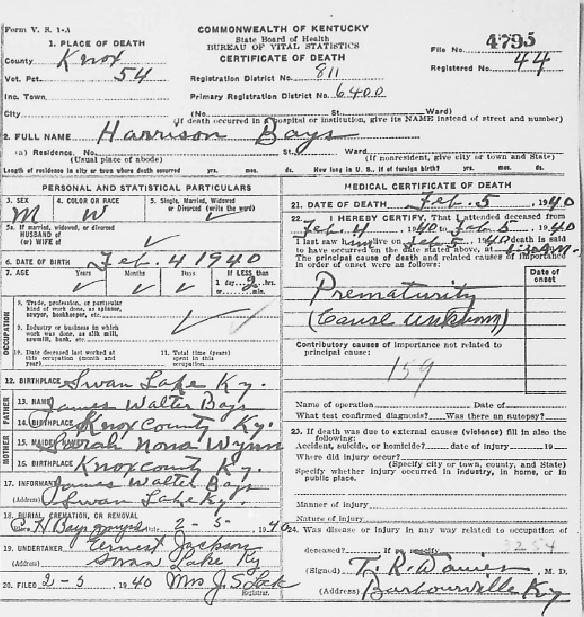 Form V. S. 1-A
COMMONWEALTH OF KENTUCKY
State Board of Health
BUREAU OF VITAL STATISTICS
CERTIFICATE OF DEATH
File No. 4795
Registered No. 44
1. PLACE OF DEATH
County Knox
Vot. Pct. 54
Registration District No. 811
Inc. Town
Primary Registration District No. 6400
City (No. St. Ward)
(If death occurred in a hospital or institution, give its NAME instead of street and number)
2. FULL NAME Harrison Bays
(a) Residence, No. St. Ward.
(Usual place of abode) (If nonresident, give city or town and State)
Length of residence in city or town where death occurred yrs. mos. ds. How long in U. S., if of foreign birth? yrs. mos. ds.
PERSONAL AND STATISTICAL PARTICULARS
3. SEX M
4. COLOR OR RACE W
5. Single, Married, Widowed
or Divorced (write the word)
5a. If married, widowed, or divorced
HUSBAND of
(or) WIFE of
6. DATE OF BIRTH Feb. 4 1940
7. AGE Years Months Days If LESS than
1 day 2 hrs.
or min.
OCCUPATION
8. Trade, profession, or particular
kind of work done, as spinner,
sawyer, bookkeeper, etc.
9. Industry or business in which
work was done, as silk mill,
sawmill, bank, etc.
10. Date deceased last worked at
this occupation (month and
year)
11. Total time (years)
spent in this
occupation
12. BIRTHPLACE Swan Lake Ky.
FATHER
13. NAME James Walter Bays
14. BIRTHPLACE Knox County Ky.
MOTHER
15. MAIDEN NAME Sarah Nona Wynn
16. BIRTHPLACE Knox County Ky.
17. INFORMANT James Walter Bays
(Address) Swan Lake Ky.
18. BURIAL, CREMATION, OR REMOVAL
Bays Date 2-5- 1940
19. UNDERTAKER Ernest Jackson
(Address) Swan Lake Ky
20. FILED 2-5, 1940 Mrs J. S.
Registrar.
MEDICAL CERTIFICATE OF DEATH
21. DATE OF DEATH Feb. 5, 1940
22. I HEREBY CERTIFY, That I attended deceased from
Feb 4, 1940 to Feb 5, 1940
I last saw him alive on Feb 5, 1940 death is said
to have occurred on the date stated above, at m.
The principal cause of death and related causes of importance
in order of onset were as follows:
Date of
onset
Prematurity
(Cause unknown)
Contributory causes of importance not related to
principal cause:
159
Name of operation Date of
What test confirmed diagnosis? Was there an autopsy?
23. If death was due to external causes (violence) fill in also the
following:
Accident, suicide, or homicide? date of injury 19
Where did injury occur?
(Specify city or town, county, and State)
Specify whether injury occurred in industry, in home, or in
public place.
Manner of injury
Nature of injury
24. Was disease or injury in any way related to occupation of
deceased? If so, specify
3254
(Signed) T. R. Davies, M. D.
(Address) Barbourville Ky